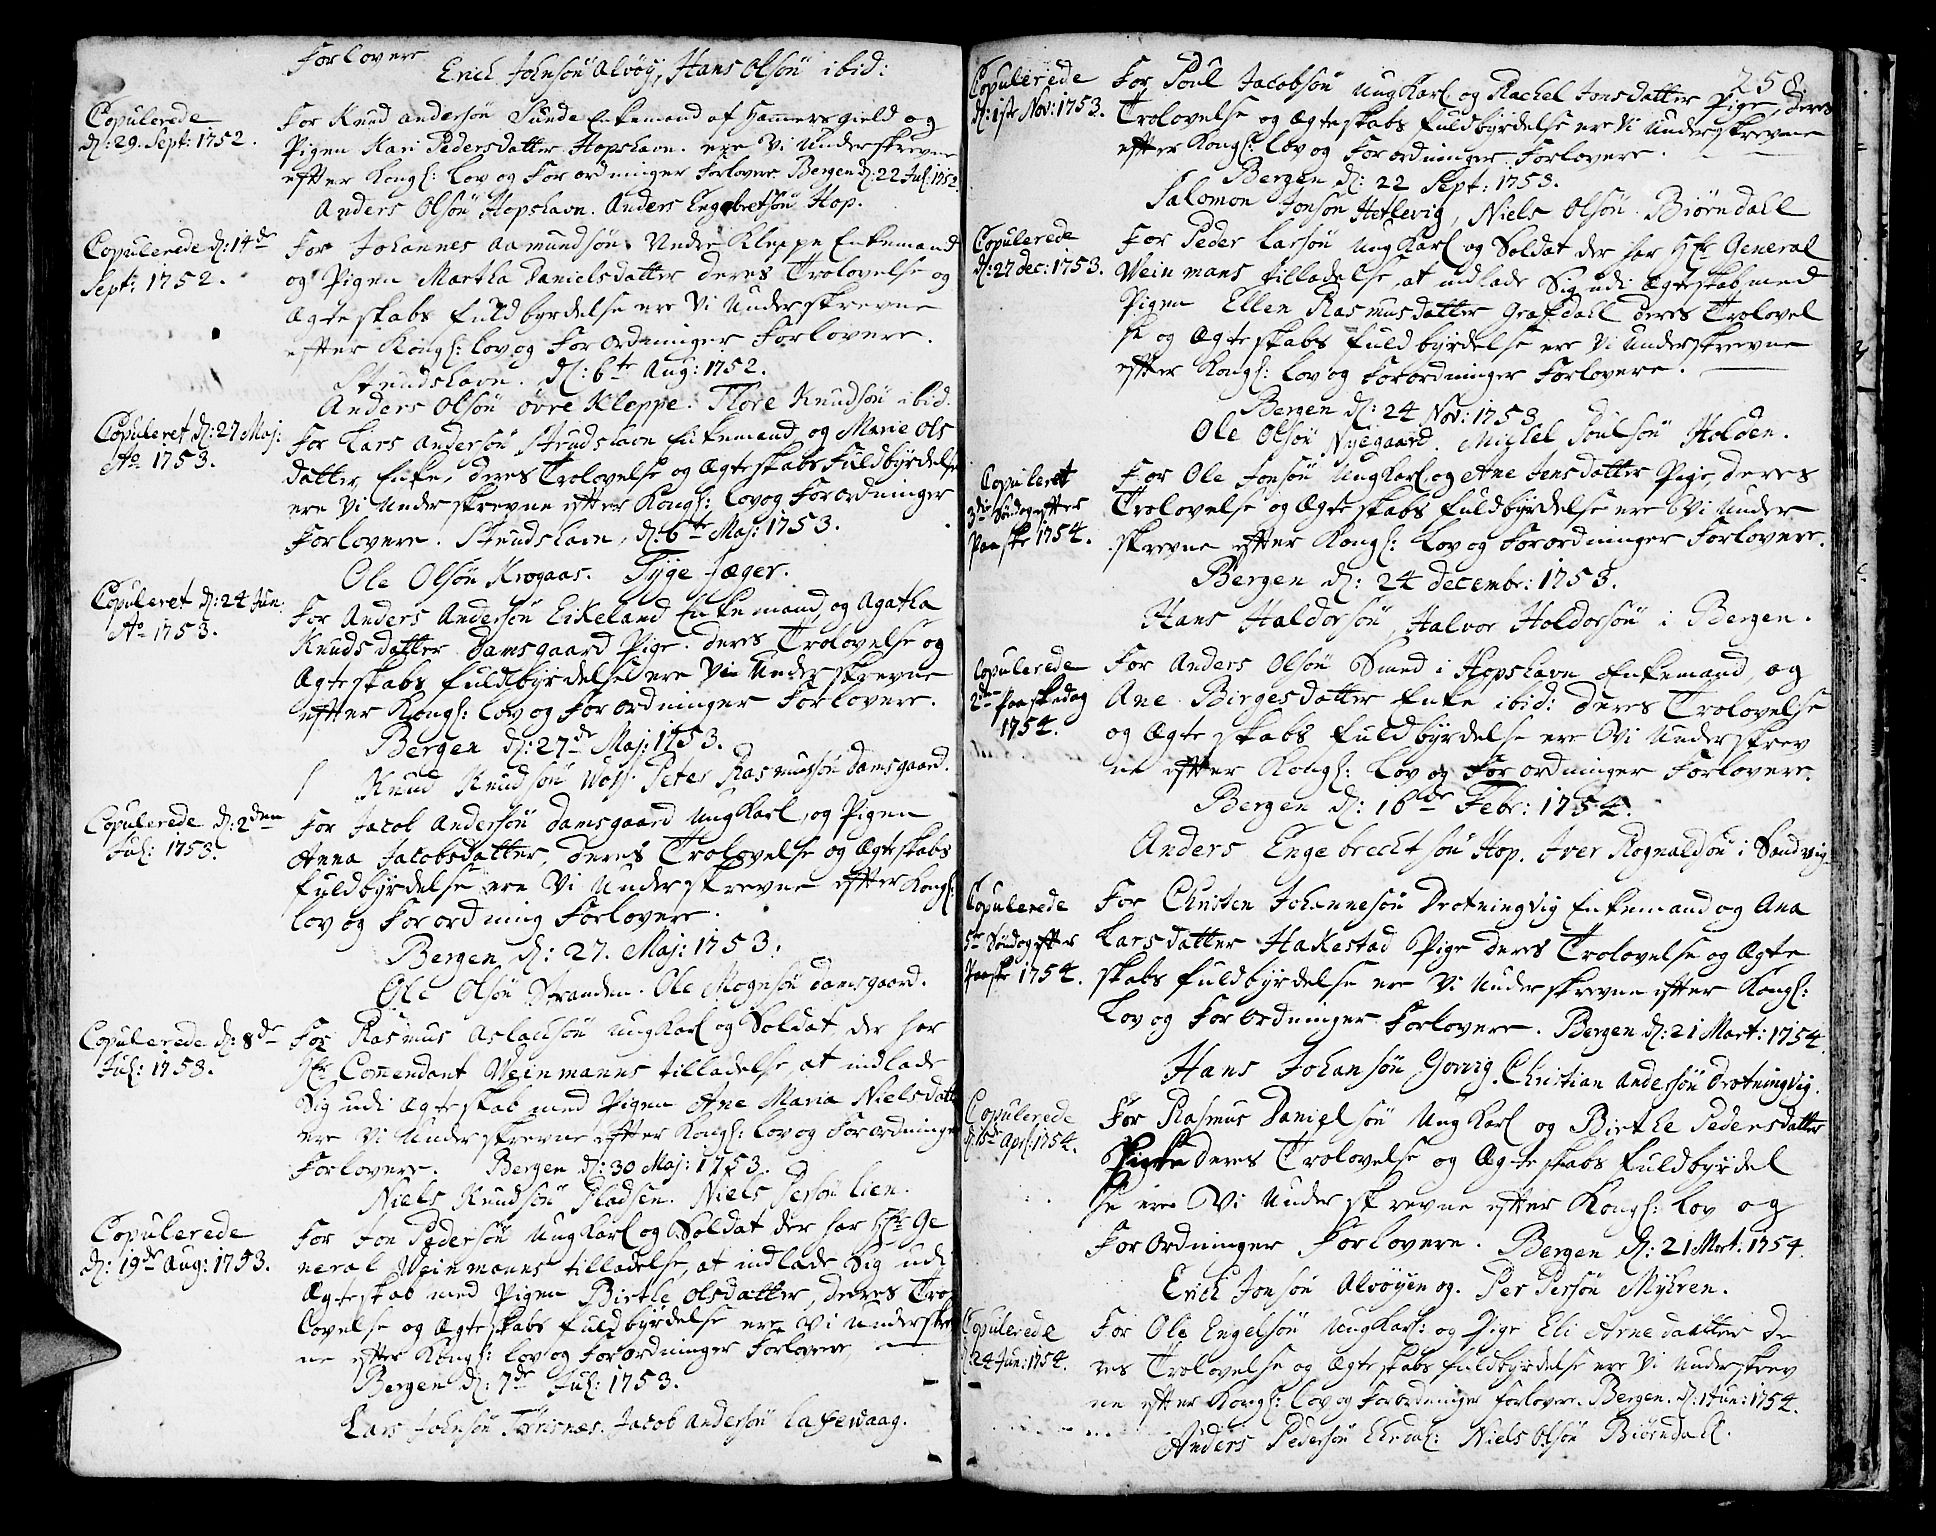 Forlovere
Erich Johnsøn Alvøy, Hans Olsøn ibid:
Copulerede
d: 29. Sept: 1752.
For Knud Andersøn Sunde Enkemand af Hammersgield og
Pigen Kari Pedersdatter Hopshavn. ere Vi Underskrevne
efter Kongl: Lov og Forordninger Forlovere Bergen d: 22 Jul: 1752.
Anders Olsøn Hopshavn. Anders Engebretsøn Hop.
Copulerede d: 14de
Sept: 1752.
For Johannes Aamundsøn Nedre Kleppe Enkemand
og Pigen Martha Danielsdatter deres Trolovelse og
Ægteskabs fuldbyrdelse ere Vi Underskrevne
efter Kongl: Lov og Forordninger Forlovere.
Strudshavn. d: 6te Aug: 1752.
Anders Olsøn øvre Kleppe. Tore Knudsøn ibid.
Copuleret d: 27 Maj:
Ao 1753.
For Lars Andersøn Strudshavn Enkemand og Marie Ols
datter Enke, deres Trolovelse og Ægteskabs Fuldbyrdelse
ere Vi Underskrevne efter Kongl: Lov og Forordninger
Forlovere. Strudshavn, d: 6te Maj: 1753.
Ole Olsøn Krogaas. Tyge Jæger.
Copuleret d: 24 Jun:
Ao 1753.
For Anders Andersøn Eikeland Enkemand og Agatha
Knudsdatter Damsgaard Pige. deres Trolovelse og
Ægteskabs fuldbyrdelse ere Vi Underskrevne
efter Kongl: Lov og Forordninger Forlovere.
Bergen d: 27de Maj: 1753.
Knud Knudsøn Peter Rasmussøn Damsgaard.
Copulerede d: 2den
Jul: 1753.
For Jacob Andersøn Damsgaard Ungkarl, og Pigen
Anna Jacobsdatter, deres Trolovelse og Ægteskabs
fuldbyrdelse ere Vi Underskrevne efter Kongl:
Lov og Forordning Forlovere.
Bergen d: 27. Maj: 1753.
Ole Olsøn Stranden. Ole Mognsøn Damsgaard.
Copulerede d: 8de
Jul: 1753.
For Rasmus Aslachsøn Ungkarl og Soldat der har
Hr Commendant Weinmanns tilladelse, at indlade
Sig udi Ægteskab med Pigen Ane Maria Nielsdatt
ere Vi Underskrevne efter Kongl: Lov og Forordninger
Forlovere. Bergen d: 30 Maj: 1753.
Niels Knudsøn Pladsen. Niels Persøn Lien.
Copulerede
d: 19de Aug: 1753.
For Jon Pedersøn Ungkarl og Soldat der har Hr Ge
neral Weinmanns tilladelse, at indlade Sig udi
Ægteskab med Pigen Birthe Olsdatter, deres Tro
lovelse og Ægteskabs fuldbyrdelse ere Vi Underskrev
ne efter Kongl: Lov og Forordninger Forlovere,
Bergen d: 7de Jul: 1753.
Lars Johnsøn Jacob Andersøn Laxewaag.
258.
Copulerede
d: 1ste Nov: 1753.
For Poul Jacobsøn Ungkarl og Rachel Jonsdatter Pige, deres
Trolovelse og Ægteskabs fuldbyrdelse ere Vi Underskrevne
efter Kongl: Lov og Forordninger Forlovere.
Bergen d: 22 Sept: 1753.
Salomon Jonsøn Hetlevig, Niels Olsøn Biørndahl
Copulerede
d: 27 Dec: 1753.
For Peder Larsøn Ungkarl og Soldat der har Hr General
Weinmans tilladelse, at indlade Sig udi Ægteskab med
Pigen Ellen Rasmusdatter Grafdahl deres Trolovel
se og Ægteskabs fuldbyrdelse ere Vi Underskrevne
efter Kongl: Lov og Forordninger Forlovere.
Bergen d: 24 Nov: 1753.
Ole Olsøn Nyegaard. Michel Poulsøn Holden.
Copuleret
3die Søndag efter
Paaske 1754.
For Ole Jonsøn Ungkarl og Ane Jensdatter Pige, deres
Trolovelse og Ægteskabs fuldbyrdelse ere Vi Under
skrevne efter Kongl: Lov og Forordninger Forlovere.
Bergen d: 24 Decembr: 1753.
Hans Haldorsøn, Halvor Holdorsøn i Bergen.
Copulerede
2den Paaskedag
1754.
For Anders Olsøn Smed i Hopshavn Enkemand, og
Ane Birgesdatter Enke ibid: deres Trolovelse
og Ægteskabs fuldbyrdelse ere Vi Underskrev
ne efter Kongl: Lov og Forordninger Forlovere.
Bergen d: 16de Febr: 1754.
Anders Engebrechtsøn Hop. Iver Rognaldsøn i Sandvig
Copulerede
5te Søndag efter
Paaske 1754.
For Christen Johannesøn Drotningvig Enkemand og Ana
Larsdatter Hakestad Pige deres Trolovelse og Ægte
skabs fuldbyrdelse ere Vi Underskrevne efter Kongl:
Lov og Forordninger Forlovere. Bergen d: 21 Mart: 1754.
Hans Johansøn Christian Andersøn Drotningvig.
Copulerede
Apr: 1754.
For Rasmus Danielsøn Ungkarl og Birthe Pedersdatter
Pige deres Trolovelse og Ægteskabs fuldbyrdel
se ere Vi Underskrevne efter Kongl: Lov og
Forordninger Forlovere. Bergen d: 21 Mart: 1754.
Erich Jonsøn Alvøyen og. Per Persøn Myhren.
Copulerede
24 Jun: 1754.
For Ole Engelsøn Ungkarl: og Pige Eli Arnedaatter de
res Trolovelse og Ægteskabs fuldbyrdelse ere Vi Underskrev
ne efter Kongl: Lov og Forordninger Forlovere. Bergen. d: 1 Jun: 1754.
Anders Pedersøn Niels Olsøn Biørndahl.